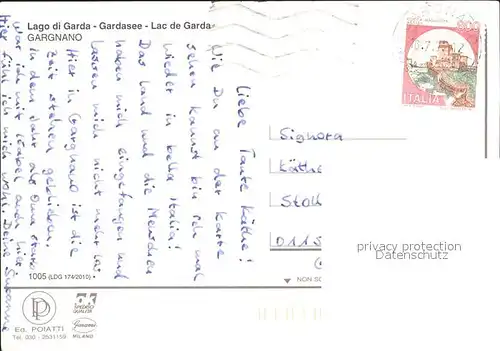 Lago di Garda - Gardasee - Lac de Garda
GARGNANO
ITALIA
Liebe Tante Käthe!
Wie Du an der Karte
sehen kannst bin ich mal
wieder in bella Italia!
Das Land und die Menschen
haben mich eingefangen und
lassen mich nicht mehr los.
Hier in Gargnano ist die
Zeit stehen geblieben.
in dem Jahr als Oma starb
war ich mit Isabel auch hier.
Hier fühl ich mich wohl. Deine Susanne
Signora
Käthe
Stoll
D-115
privacy protection
1005 (LDG 174/2010)
NON SC
Ed. POIATTI
Tel. 030 - 2531159
MILANO